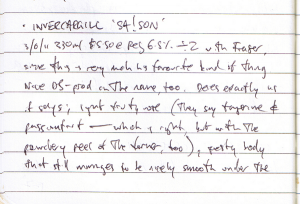 · INVERCARGILL 'SA!SON'
3/0/11 330ml $5.50 e Reg 6.5% ÷2 with Fraser,
since this is very much his favourite kind of thing
Nice DS-prod in the name, too. Does exactly as
it says; light fruity nose (They say tangerine &
passionfruit — which is right, but with the
powdery peel of the former, too), zesty body
that still manages to be nicely smooth under the